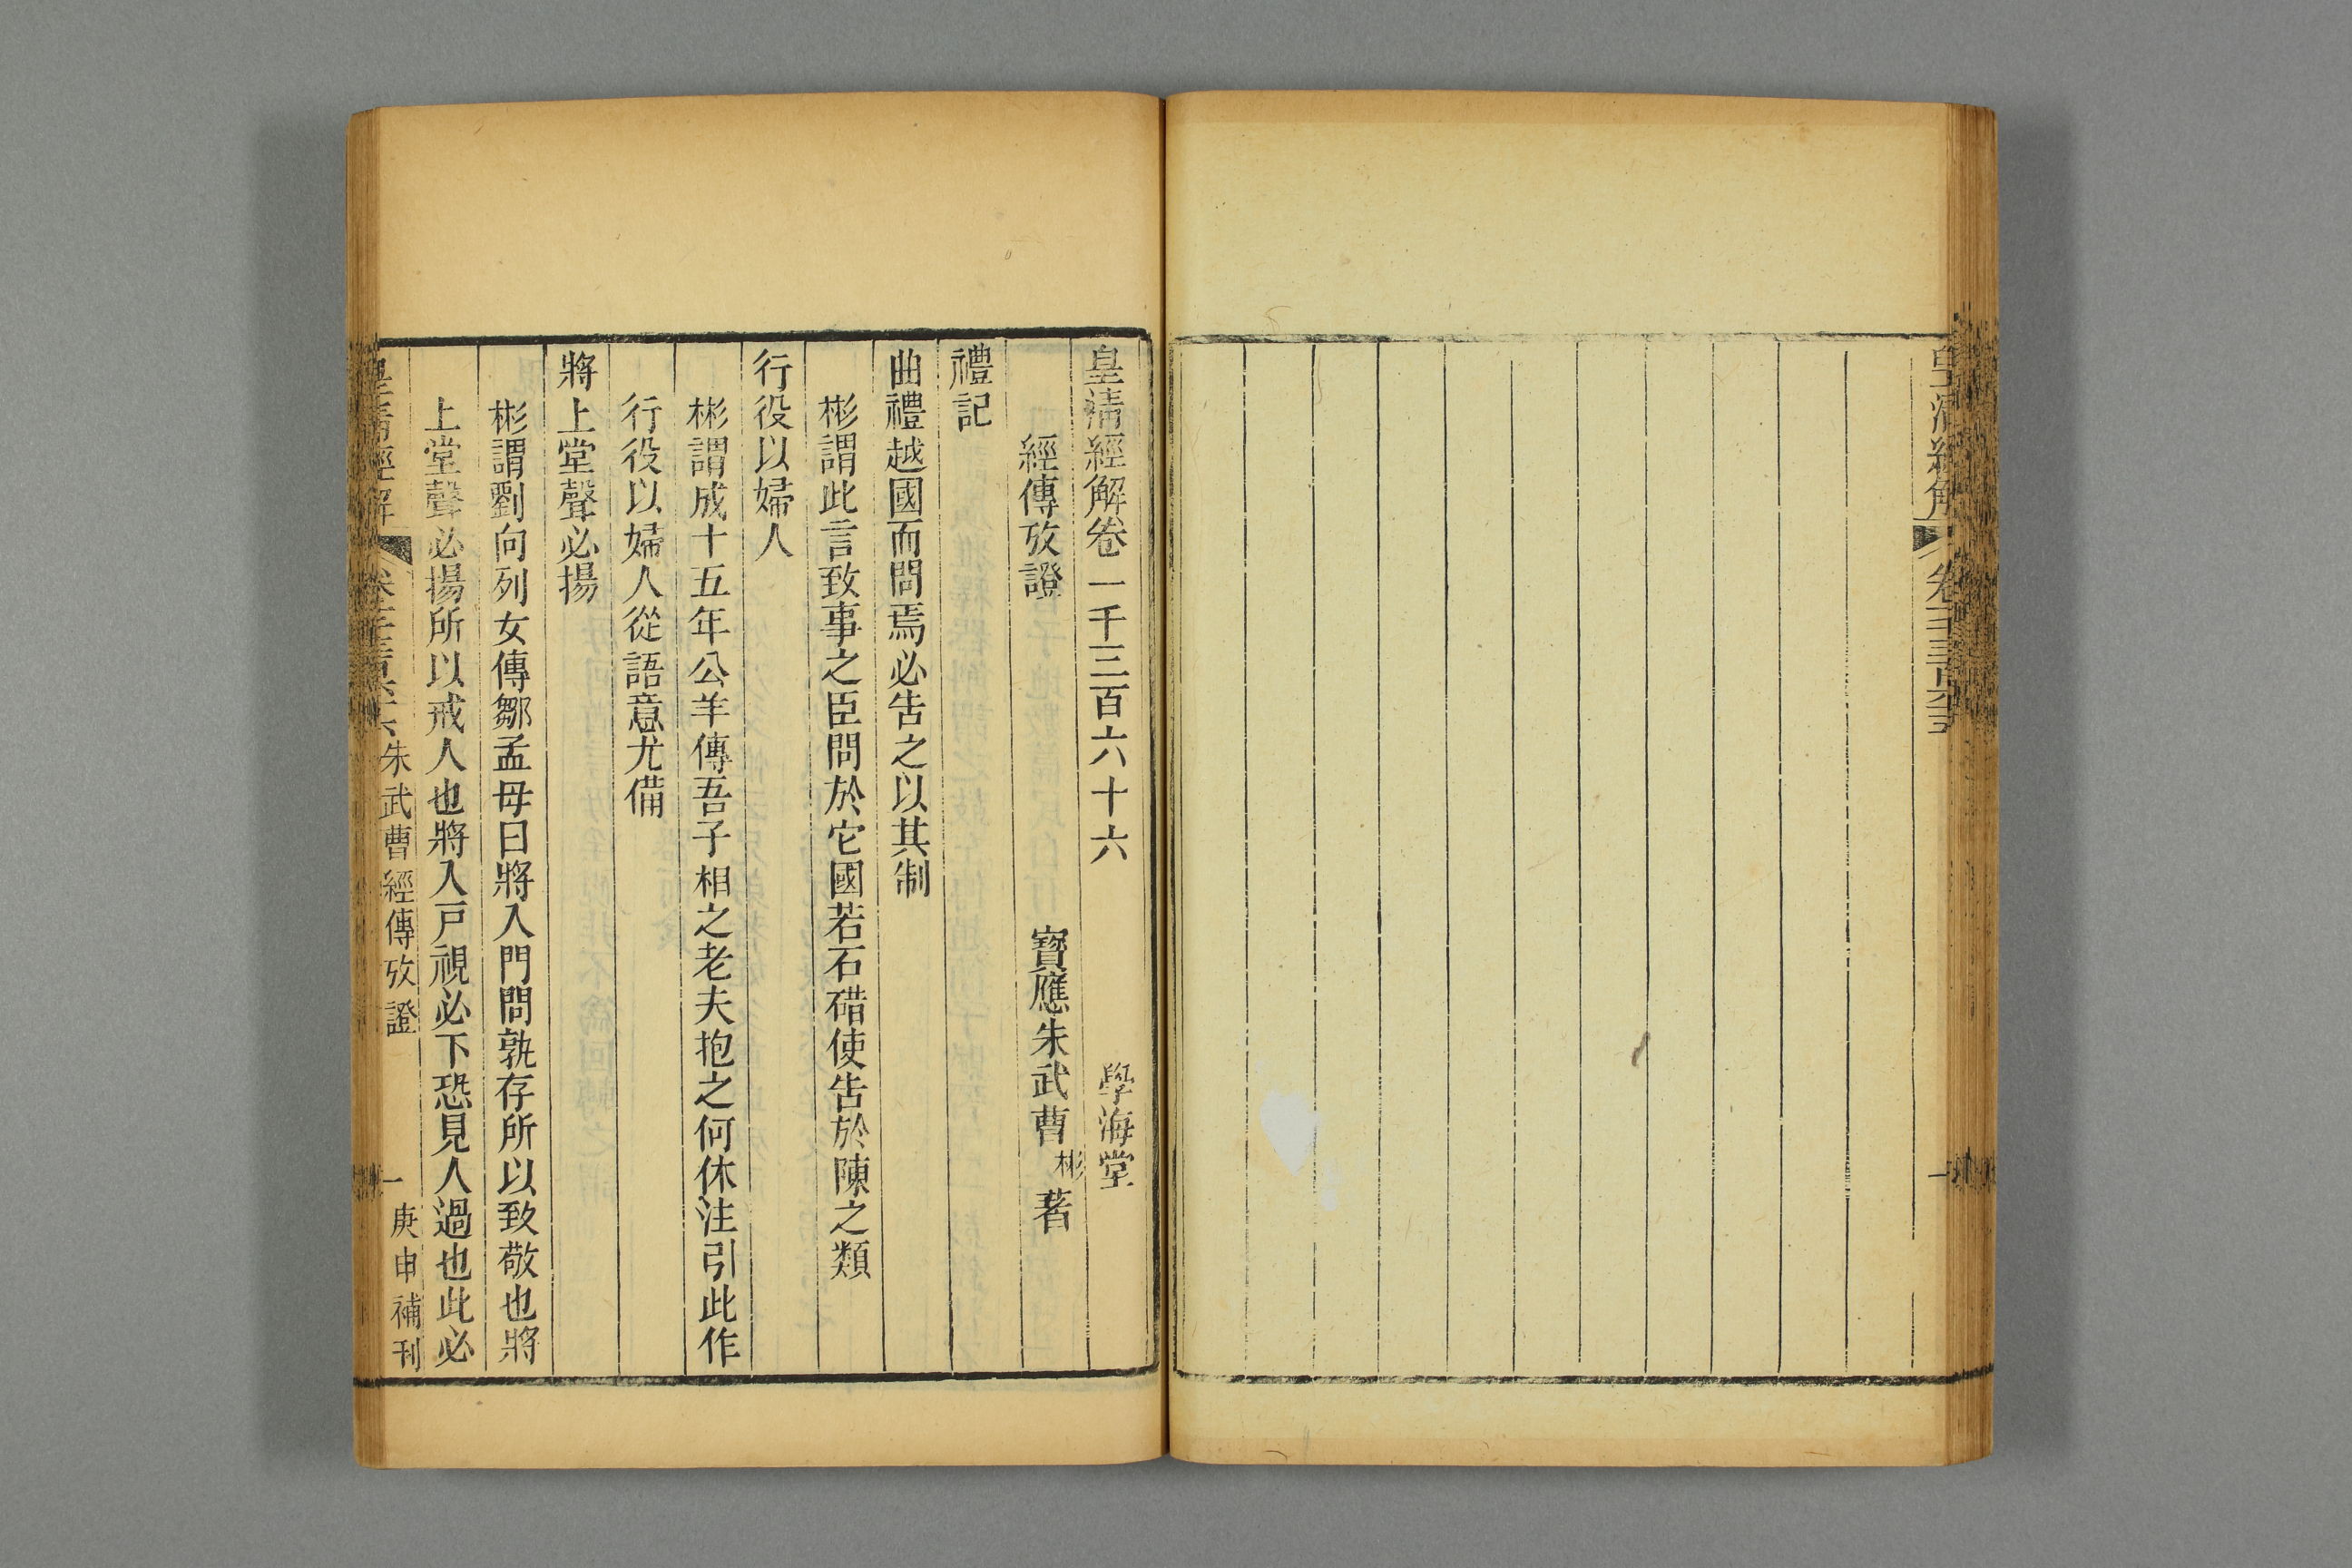 皇清經解
皇清經解卷一千三百六十六
學海堂
經傳攷證
寶應朱武曹彬著
禮記
曲禮越國而問焉必告之以其制
彬謂此言致事之臣問於它國若石碏使告於陳之類
行役以婦人
彬謂成十五年公羊傳吾子相之老夫抱之何休注引此作
行役以婦人從語意尤備
將上堂聲必揚
彬謂劉向列女傳鄒孟母曰將入門問孰存所以致敬也將
上堂聲必揚所以戒人也將入戸視必下恐見人過也此必
皇清經解
卷一千三百六十六
朱武曹經傳攷證
一
庚申補刊